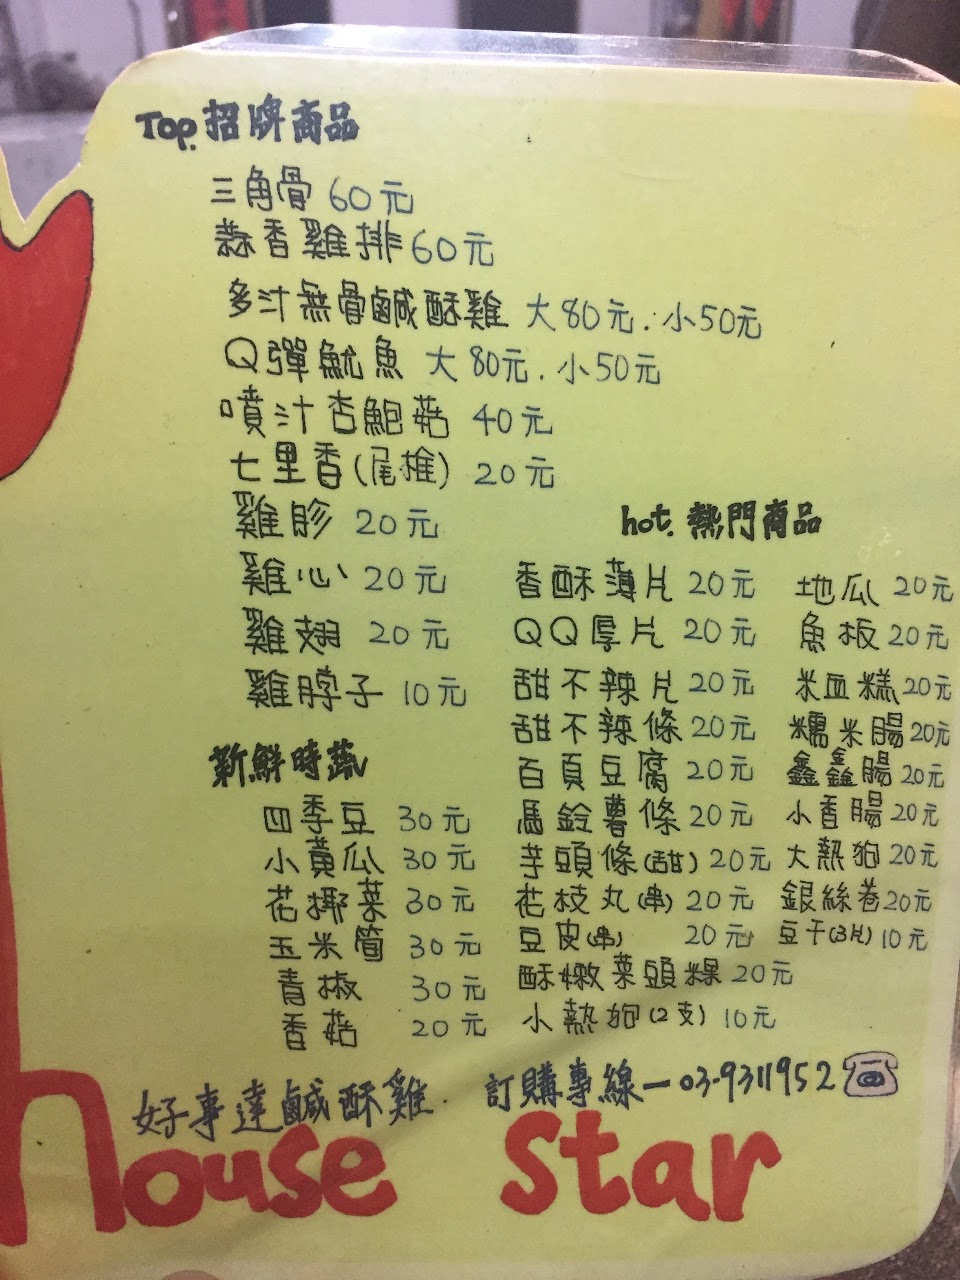 Top. 招牌商品
三角骨 60元
蒜香雞排 60元
多汁無骨鹹酥雞 大80元.小50元
Q彈魷魚 大80元.小50元
噴汁杏鮑菇 40元
七里香(尾椎) 20元
雞胗 20元
雞心 20元
雞翅 20元
雞脖子 10元
新鮮時蔬
四季豆 30元
小黃瓜 30元
花椰菜 30元
玉米筒 30元
青椒 30元
香菇 20元
hot. 熱門商品
香酥薄片 20元
QQ厚片 20元
甜不辣片 20元
甜不辣條 20元
百頁豆腐 20元
馬鈴薯條 20元
芋頭條(甜) 20元
花枝丸(串) 20元
豆皮(串) 20元
酥嫩菜頭粿 20元
小熱狗(2支) 10元
地瓜 20元
魚板 20元
米血糕 20元
糯米腸 20元
鑫鑫腸 20元
小香腸 20元
大熱狗 20元
銀絲卷 20元
豆干(3片) 10元
好事達鹹酥雞. 訂購專線一03-9311952
house star